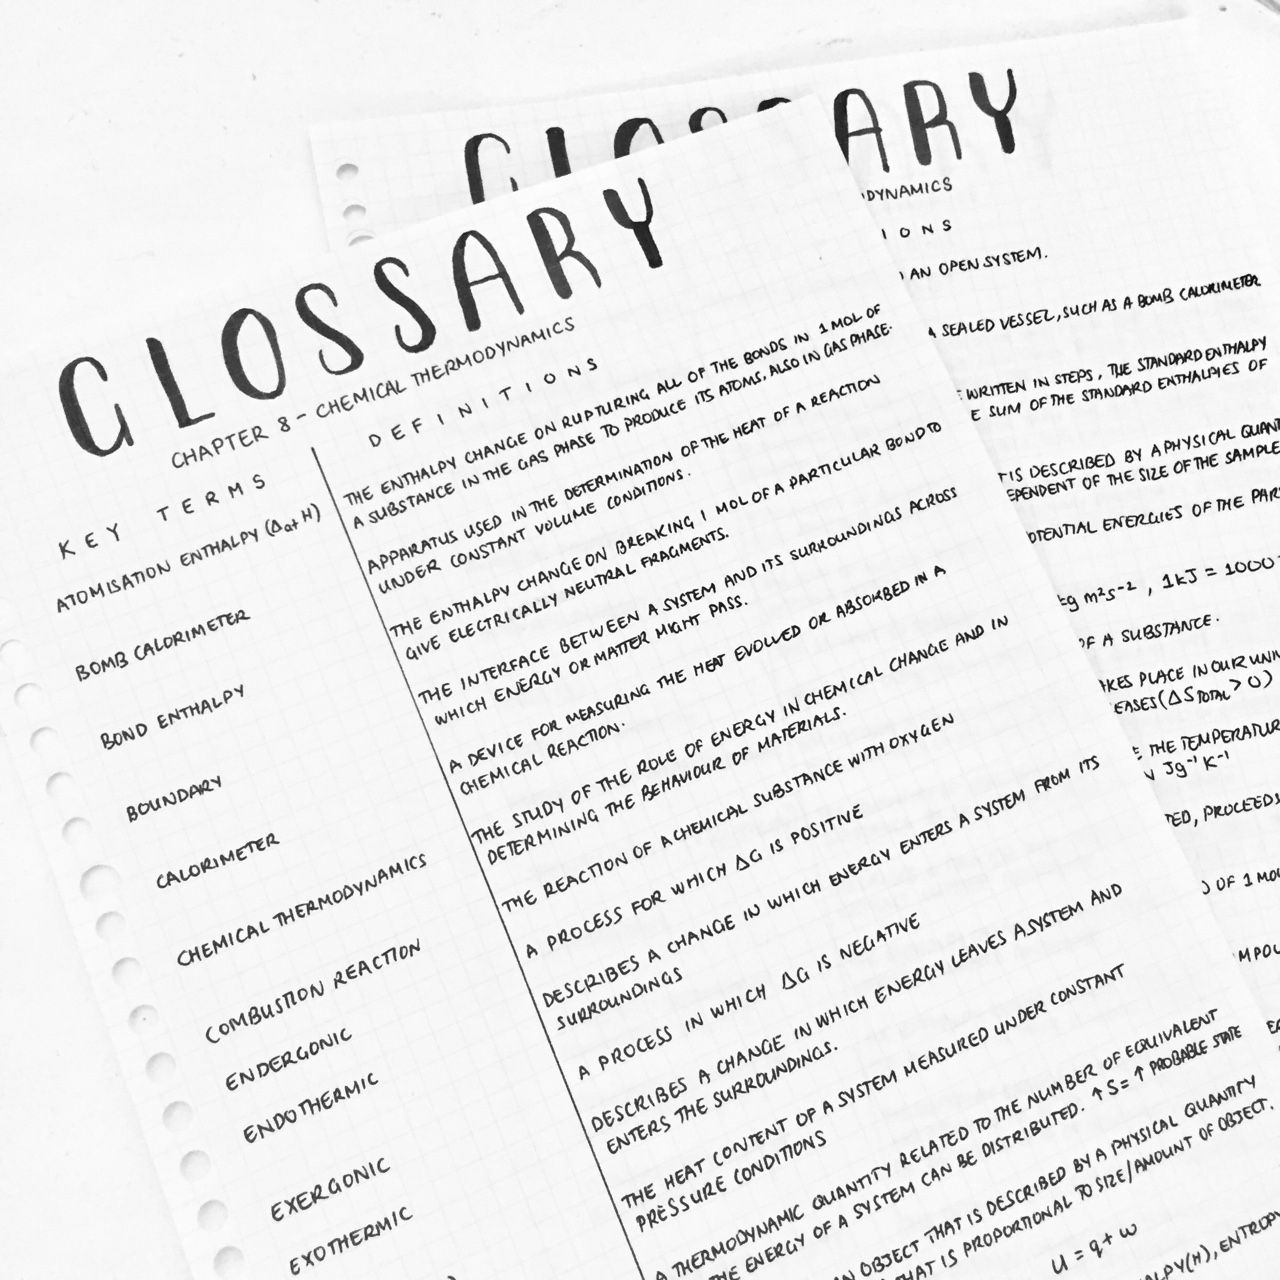 GLOSSARY
CHAPTER 8 - CHEMICAL THERMODYNAMICS
KEY TERMS
DEFINITIONS
ATOMISATION ENTHALPY (ΔatH)
THE ENTHALPY CHANGE ON RUPTURING ALL OF THE BONDS IN 1 MOL OF
A SUBSTANCE IN THE GAS PHASE TO PRODUCE ITS ATOMS, ALSO IN GAS PHASE.
BOMB CALORIMETER
APPARATUS USED IN THE DETERMINATION OF THE HEAT OF A REACTION
UNDER CONSTANT VOLUME CONDITIONS.
BOND ENTHALPY
THE ENTHALPY CHANGE ON BREAKING 1 MOL OF A PARTICULAR BOND TO
GIVE ELECTRICALLY NEUTRAL FRAGMENTS.
BOUNDARY
THE INTERFACE BETWEEN A SYSTEM AND ITS SURROUNDINGS ACROSS
WHICH ENERGY OR MATTER MIGHT PASS.
CALORIMETER
A DEVICE FOR MEASURING THE HEAT EVOLVED OR ABSORBED IN A
CHEMICAL REACTION.
CHEMICAL THERMODYNAMICS
THE STUDY OF THE ROLE OF ENERGY IN CHEMICAL CHANGE AND IN
DETERMINING THE BEHAVIOUR OF MATERIALS.
COMBUSTION REACTION
THE REACTION OF A CHEMICAL SUBSTANCE WITH OXYGEN
ENDERGONIC
A PROCESS FOR WHICH ΔG IS POSITIVE
ENDOTHERMIC
DESCRIBES A CHANGE IN WHICH ENERGY ENTERS A SYSTEM FROM ITS
SURROUNDINGS
EXERGONIC
A PROCESS IN WHICH ΔG IS NEGATIVE
EXOTHERMIC
DESCRIBES A CHANGE IN WHICH ENERGY LEAVES A SYSTEM AND
ENTERS THE SURROUNDINGS.
THE HEAT CONTENT OF A SYSTEM MEASURED UNDER CONSTANT
PRESSURE CONDITIONS
A THERMODYNAMIC QUANTITY RELATED TO THE NUMBER OF EQUIVALENT
THE ENERGY OF A SYSTEM CAN BE DISTRIBUTED. ↑ S = ↑ PROBABLE STATE
OBJECT THAT IS DESCRIBED BY A PHYSICAL QUANTITY
THAT IS PROPORTIONAL TO SIZE/AMOUNT OF OBJECT.
U = q + w
ENTROPY
GLOSSARY
AN OPEN SYSTEM.
SEALED VESSEL, SUCH AS A BOMB CALORIMETER
WRITTEN IN STEPS, THE STANDARD ENTHALPY
SUM OF THE STANDARD ENTHALPIES OF
IS DESCRIBED BY A PHYSICAL
OF THE SIZE OF THE SAMPLE
ENERGIES OF THE
kg m²s⁻², 1kJ = 1000
OF A SUBSTANCE.
PLACE IN OUR
(ΔSTOTAL > 0)
THE
Jg⁻¹K⁻¹
PROCEEDS
OF 1